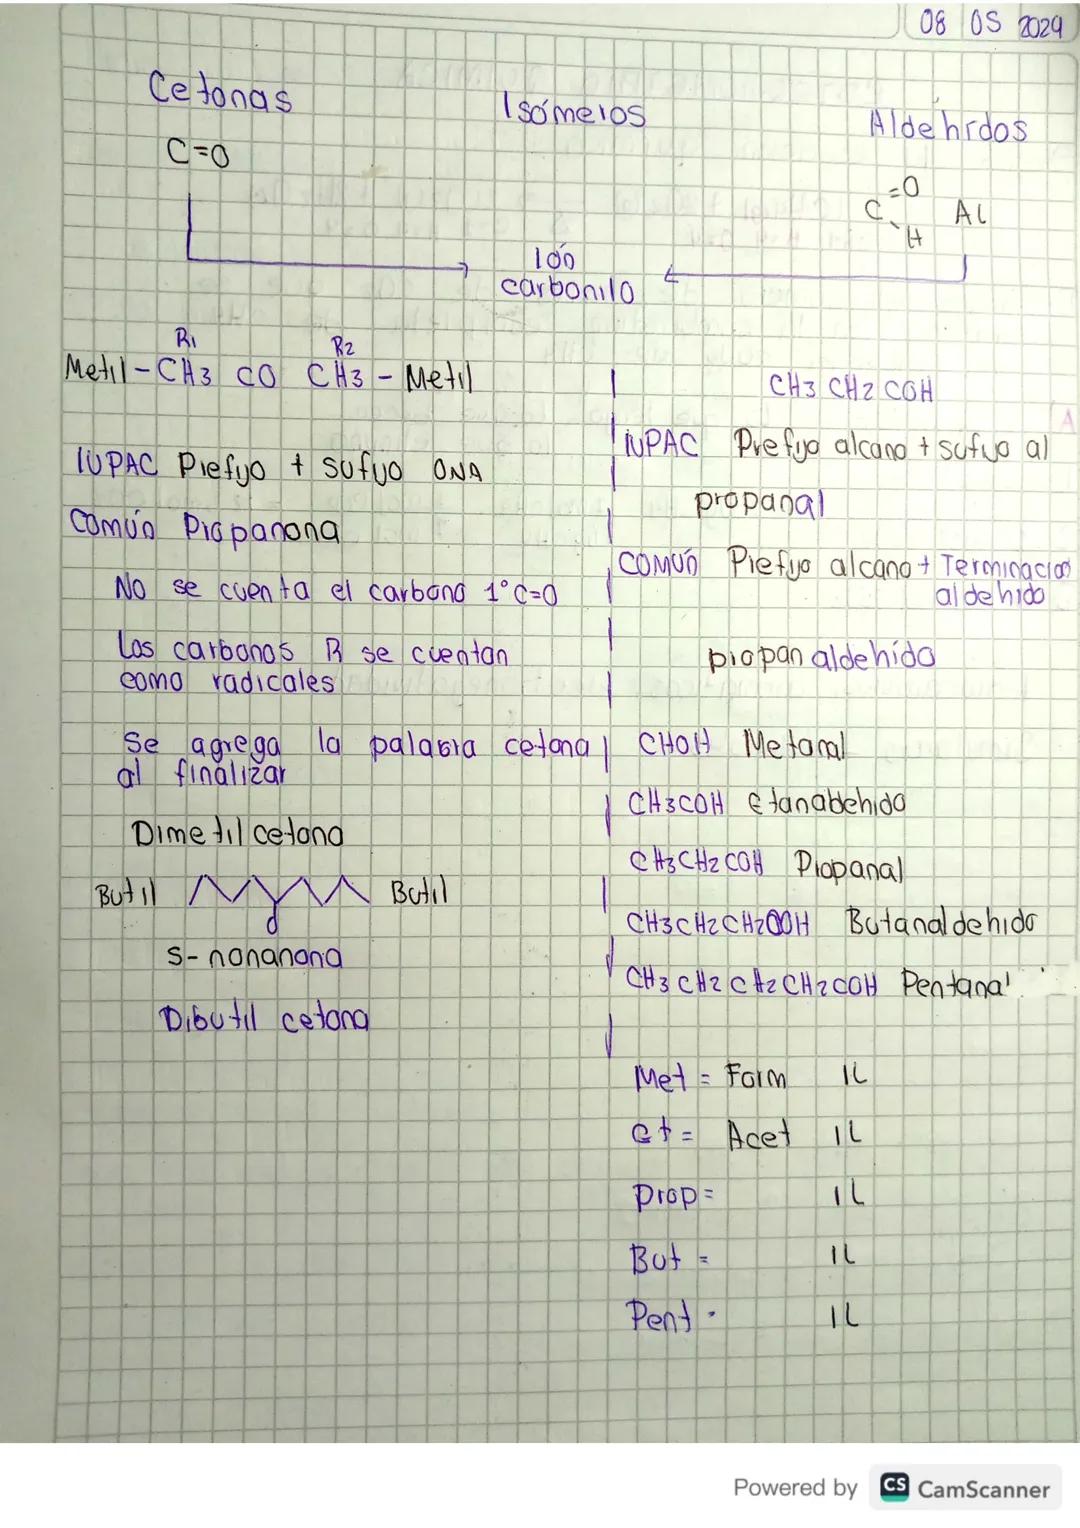 08 05 2024
Cetonas
Isómeros
Aldehidos
C=O
C =O
H
AL
Ión
carbonilo
R1 R2
Metil-CH3 CO CH3-Metil
IUPAC Prefijo + sufijo ONA
Común Propanona
No se cuenta el carbono 1° C=O
Los carbonos R se cuentan
como radicales
Se agrega la palabra cetona
al finalizar
Dimetil cetona
Butil Butil
O
5-nonanona
Dibutil cetona
CH3 CH2 COH
IUPAC Prefijo alcano + sufijo al
propanal
COMÚN Prefijo alcano + Terminacion
aldehido
propan aldehido
CHOH Metanal
CH3COH Etanaldehido
CH3CH2COH Propanal
CH3CH2CH2COH Butanaldehido
CH3CH2CH2CH2COH Pentanal
Met = Form IL
Et = Acet IL
Prop = IL
But = IL
Pent - IL
Powered by CS CamScanner